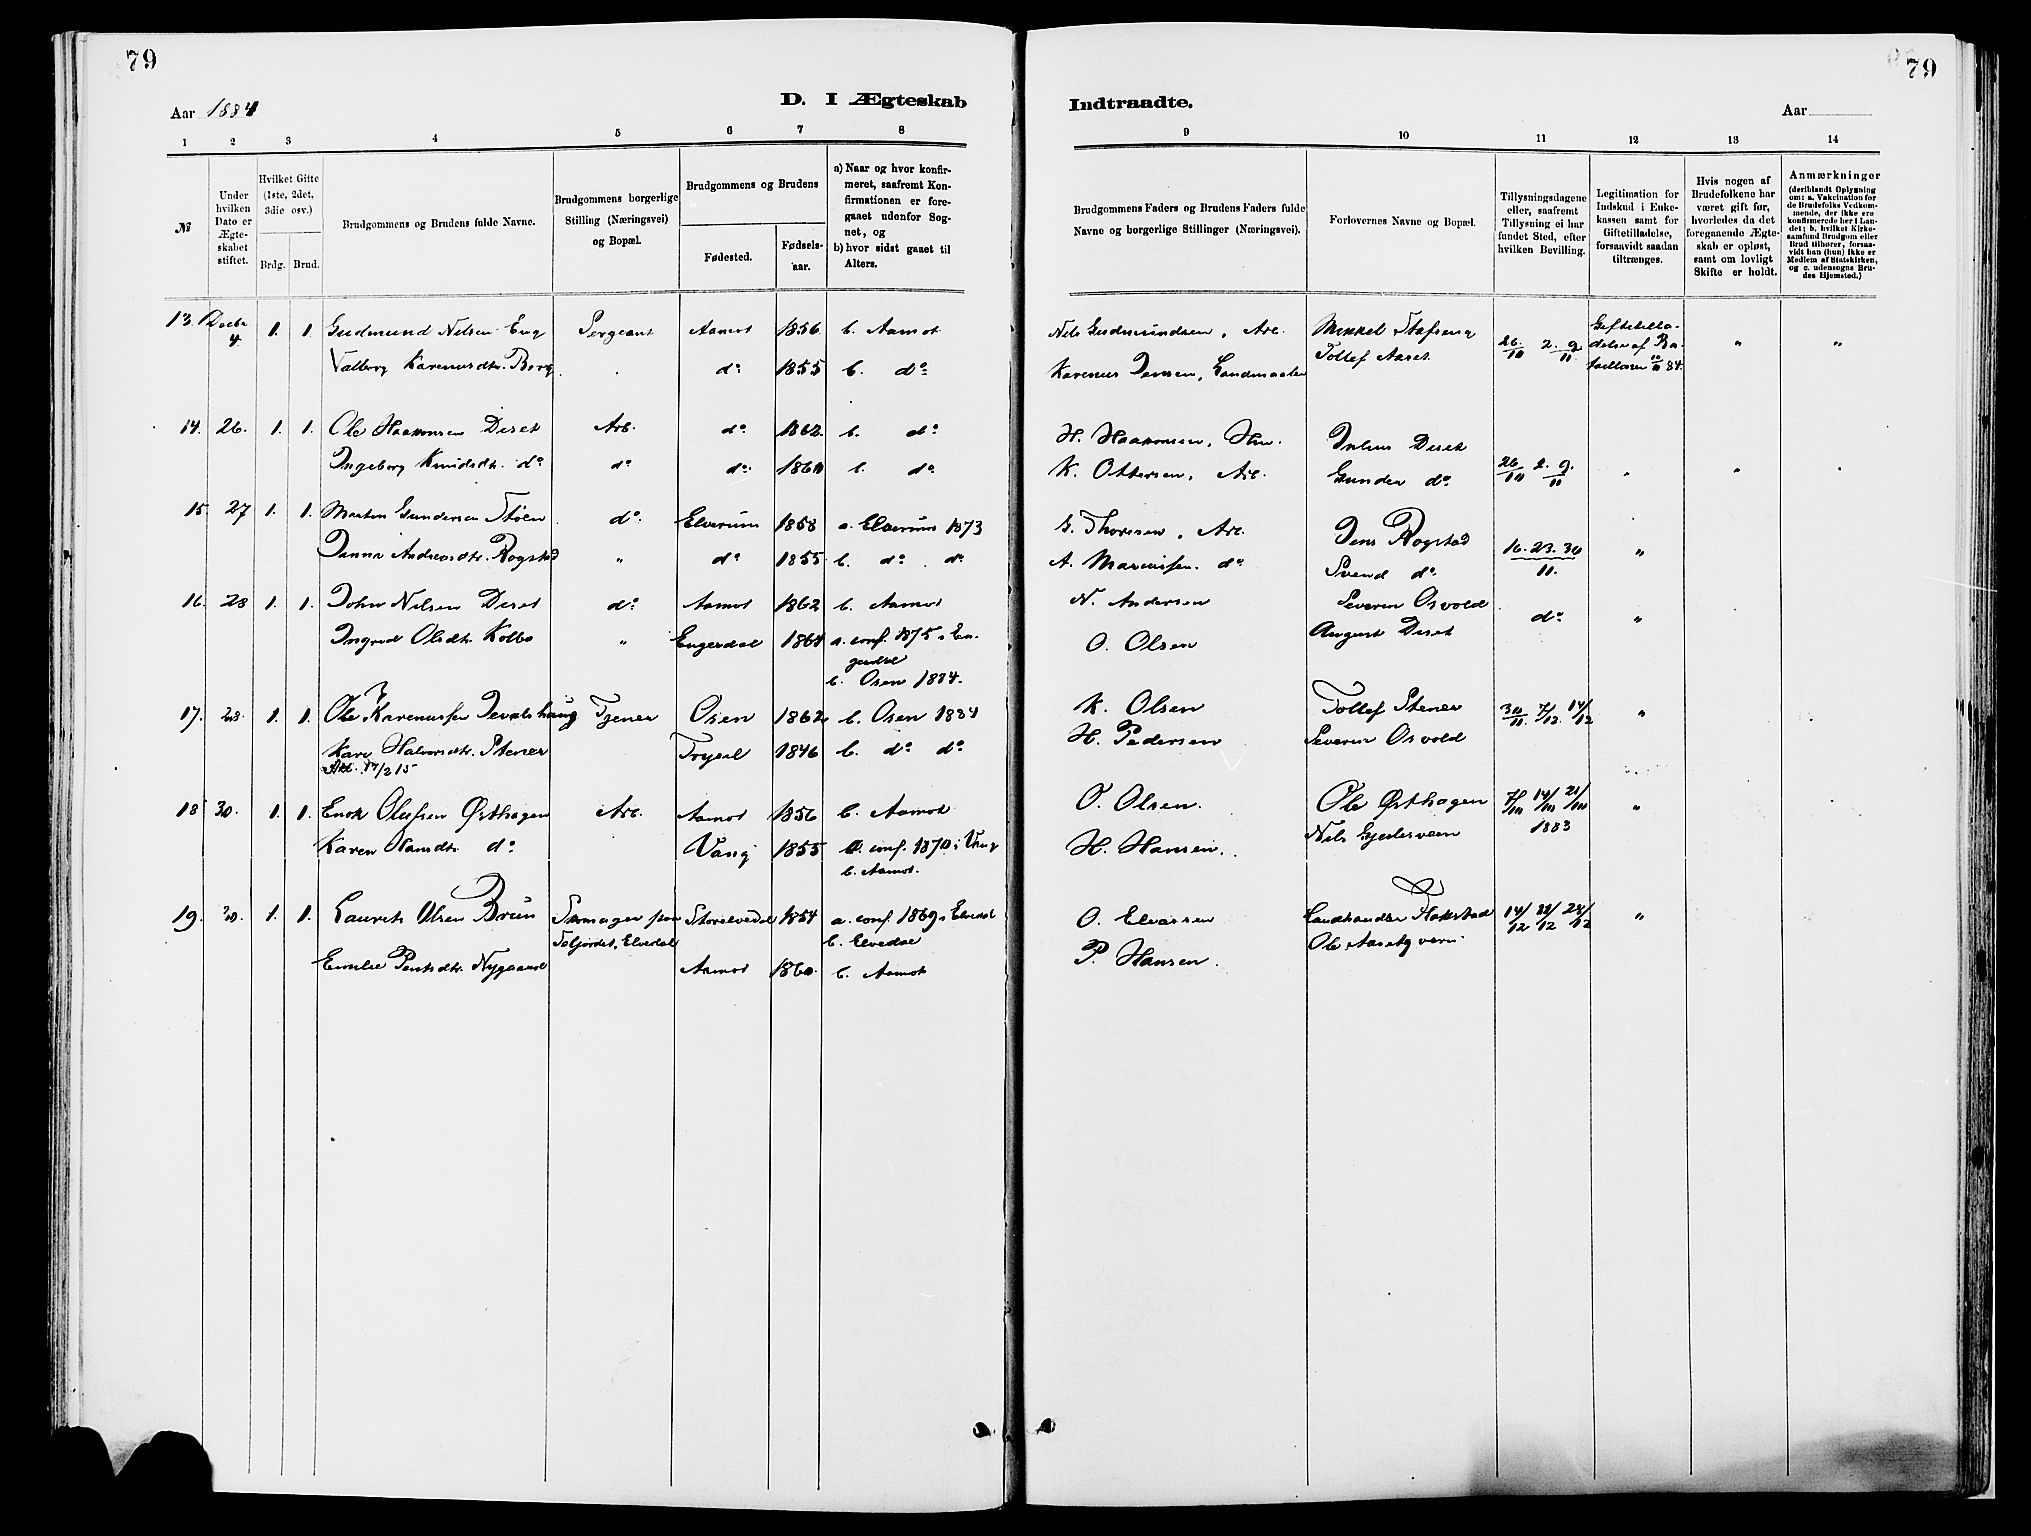 79
Aar 1884
D. I Ægteskab
1 2 3 4 5 6 7 8
№
Under hvilken Dato er Ægteskabet stiftet.
Hvilket Gifte (1ste, 2det, 3die osv.)
Brdg. Brud.
Brudgommens og Brudens fulde Navne.
Brudgommens borgerlige Stilling (Næringsvei) og Bopæl.
Brudgommens og Brudens
Fødested.
Fødselsaar.
a) Naar og hvor konfirmeret, saafremt Konfirmationen er foregaaet udenfor Sognet, og
b) hvor sidst gaaet til Alters.
13. Decbr 4. 1. 1. Gudmund Nilsen Eng Sergeant Aamot 1856 b. Aamot
Valborg Karenusdtr. Borg do 1855 b. do
14. 26. 1. 1. Ole Haakonsen Deset Arb. do 1862. b. do
Ingeborg Knudsdtr. do do do b. do
15. 27 1. 1. Martin Gundersen do Elverum 1858 a. Elverum 1873
Andreasdtr. Rogstad " do 1855 b. do do
16. 28 1. 1. John Nilsen Deset do Aamot 1862 b. Aamot
Ingrid Olsdtr Kolbo " Engerdal 1864 a. conf. 1875 i Engerdal
b. Osen 1884.
17. 28. 1. 1. Ole Karenussen Tjener Osen 1862 b. Osen 1884
Kari Halvorsdtr. Stener Trysil 1846 b. do do
18 30. 1. 1. Enok Olufsen Østhagen Arb. Aamot 1856 b. Aamot
Karen Hansdtr do Vang 1855 a. conf. 1870 i Vang
b. Aamot.
19. 30. 1. 1. Laurits Olsen Brun Storelvedal 1854 a. conf. 1869 i Elvedal
b. Elvedal
Emilie Nygaard Aamot 1860. b. Aamot
79
Indtraadte.
Aar
9 10 11 12 13 14
Brudgommens Faders og Brudens Faders fulde Navne og borgerlige Stillinger (Næringsvei).
Forlovernes Navne og Bopæl.
Tillysningsdagene eller, saafremt Tillysning ei har fundet Sted, efter hvilken Bevilling.
Legitimation for Indskud i Enkekassen samt for Giftetilladelse, forsaavidt saadan tiltrænges.
Hvis nogen af Brudefolkene har været gift før, hvorledes da det foregaaende Ægteskab er opløst, samt om lovligt Skifte er holdt.
Anmærkninger
(deriblandt Oplysning om: a. Vakcination for de Brudefolks Vedkommende, der ikke ere konfirmerede her i Landet; b. hvilket Kirkesamfund Brudgom eller Brud tilhører, forsaavidt han (hun) ikke er Medlem af Statskirken, og c. udensogns Brudes Hjemsted.)
Nils Gudmundsen, Arb. 26/10 2. 9/11 " "
Tollef Aaset
Karenus Jensen,
H. Haakonsen, Deset
K. Ottersen, Arb. Gunder do 26/10 2. 9./11
G. Thoresen, Arb. Jens Rogstad 16. 23. 30/11. "
A. do Svend do
N. Andersen Severin Osvold do "
O. Olsen August Deset
K. Olsen Tollef Stener 30/11 7/12 14/12 "
H. Pedersen Severin Osvold
O. Olsen Ole Østhagen 1883 "
H. Hansen.
O. Landhandler 14/12 24/12 "
P. Hansen.